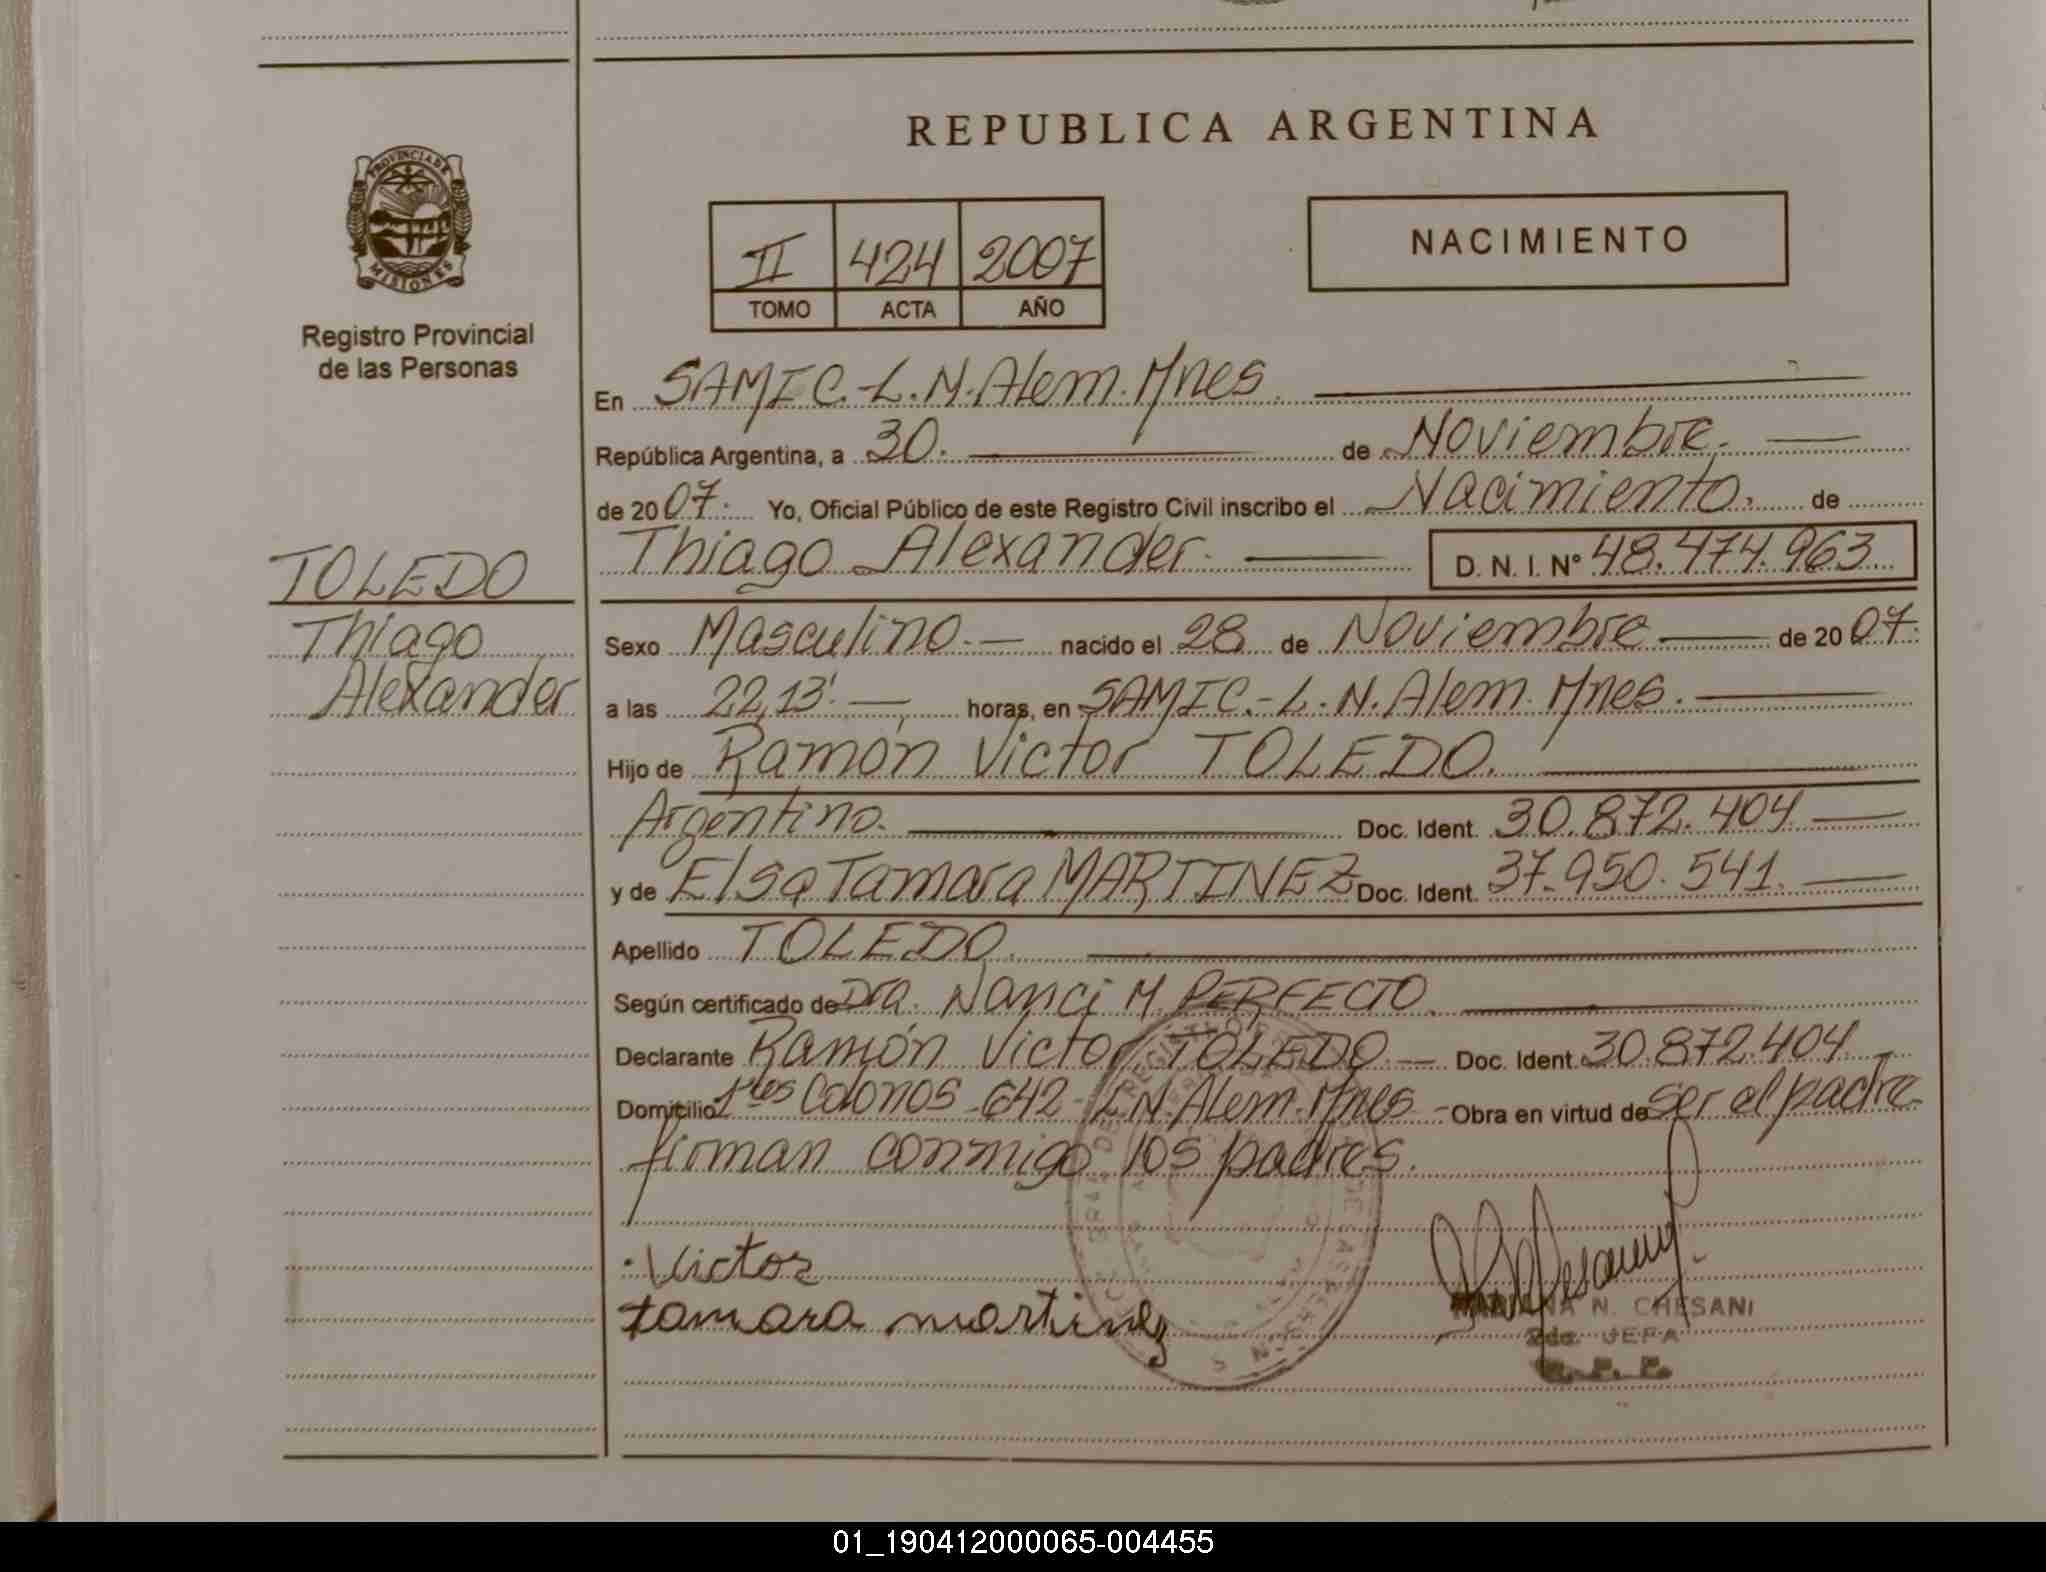 REPUBLICA ARGENTINA
PROVINCIA DE
MISIONES
Registro Provincial
de las Personas
II 424 2007
TOMO ACTA AÑO
NACIMIENTO
En SAMIC.-L.N.Alem.Mnes.
República Argentina, a 30. de Noviembre.
de 2007. Yo, Oficial Público de este Registro Civil inscribo el Nacimiento. de
Thiago Alexander. D. N. I. Nº 48.474.963
TOLEDO
Thiago
Alexander
Sexo Masculino.- nacido el 28 de Noviembre de 2007.
a las 22,13'. horas, en SAMIC.-L.N.Alem.Mnes.
Hijo de Ramón Victor TOLEDO.
Argentino. Doc. Ident. 30.872.404
y de Elsa Tamara MARTINEZ Doc. Ident. 37.950.541.
Apellido TOLEDO.
Según certificado de Dra. Nanci M. PERFECTO.
Declarante Ramón Victor TOLEDO.- Doc. Ident. 30.872.404
Domicilio 1ros Colonos-642-L.N.Alem.Mnes - Obra en virtud de ser el padre
firman conmigo los padres.
Victor
tamara martinez
MARIANA N. CHESANI
2da. JEFA
R. P. P.
01_190412000065-004455